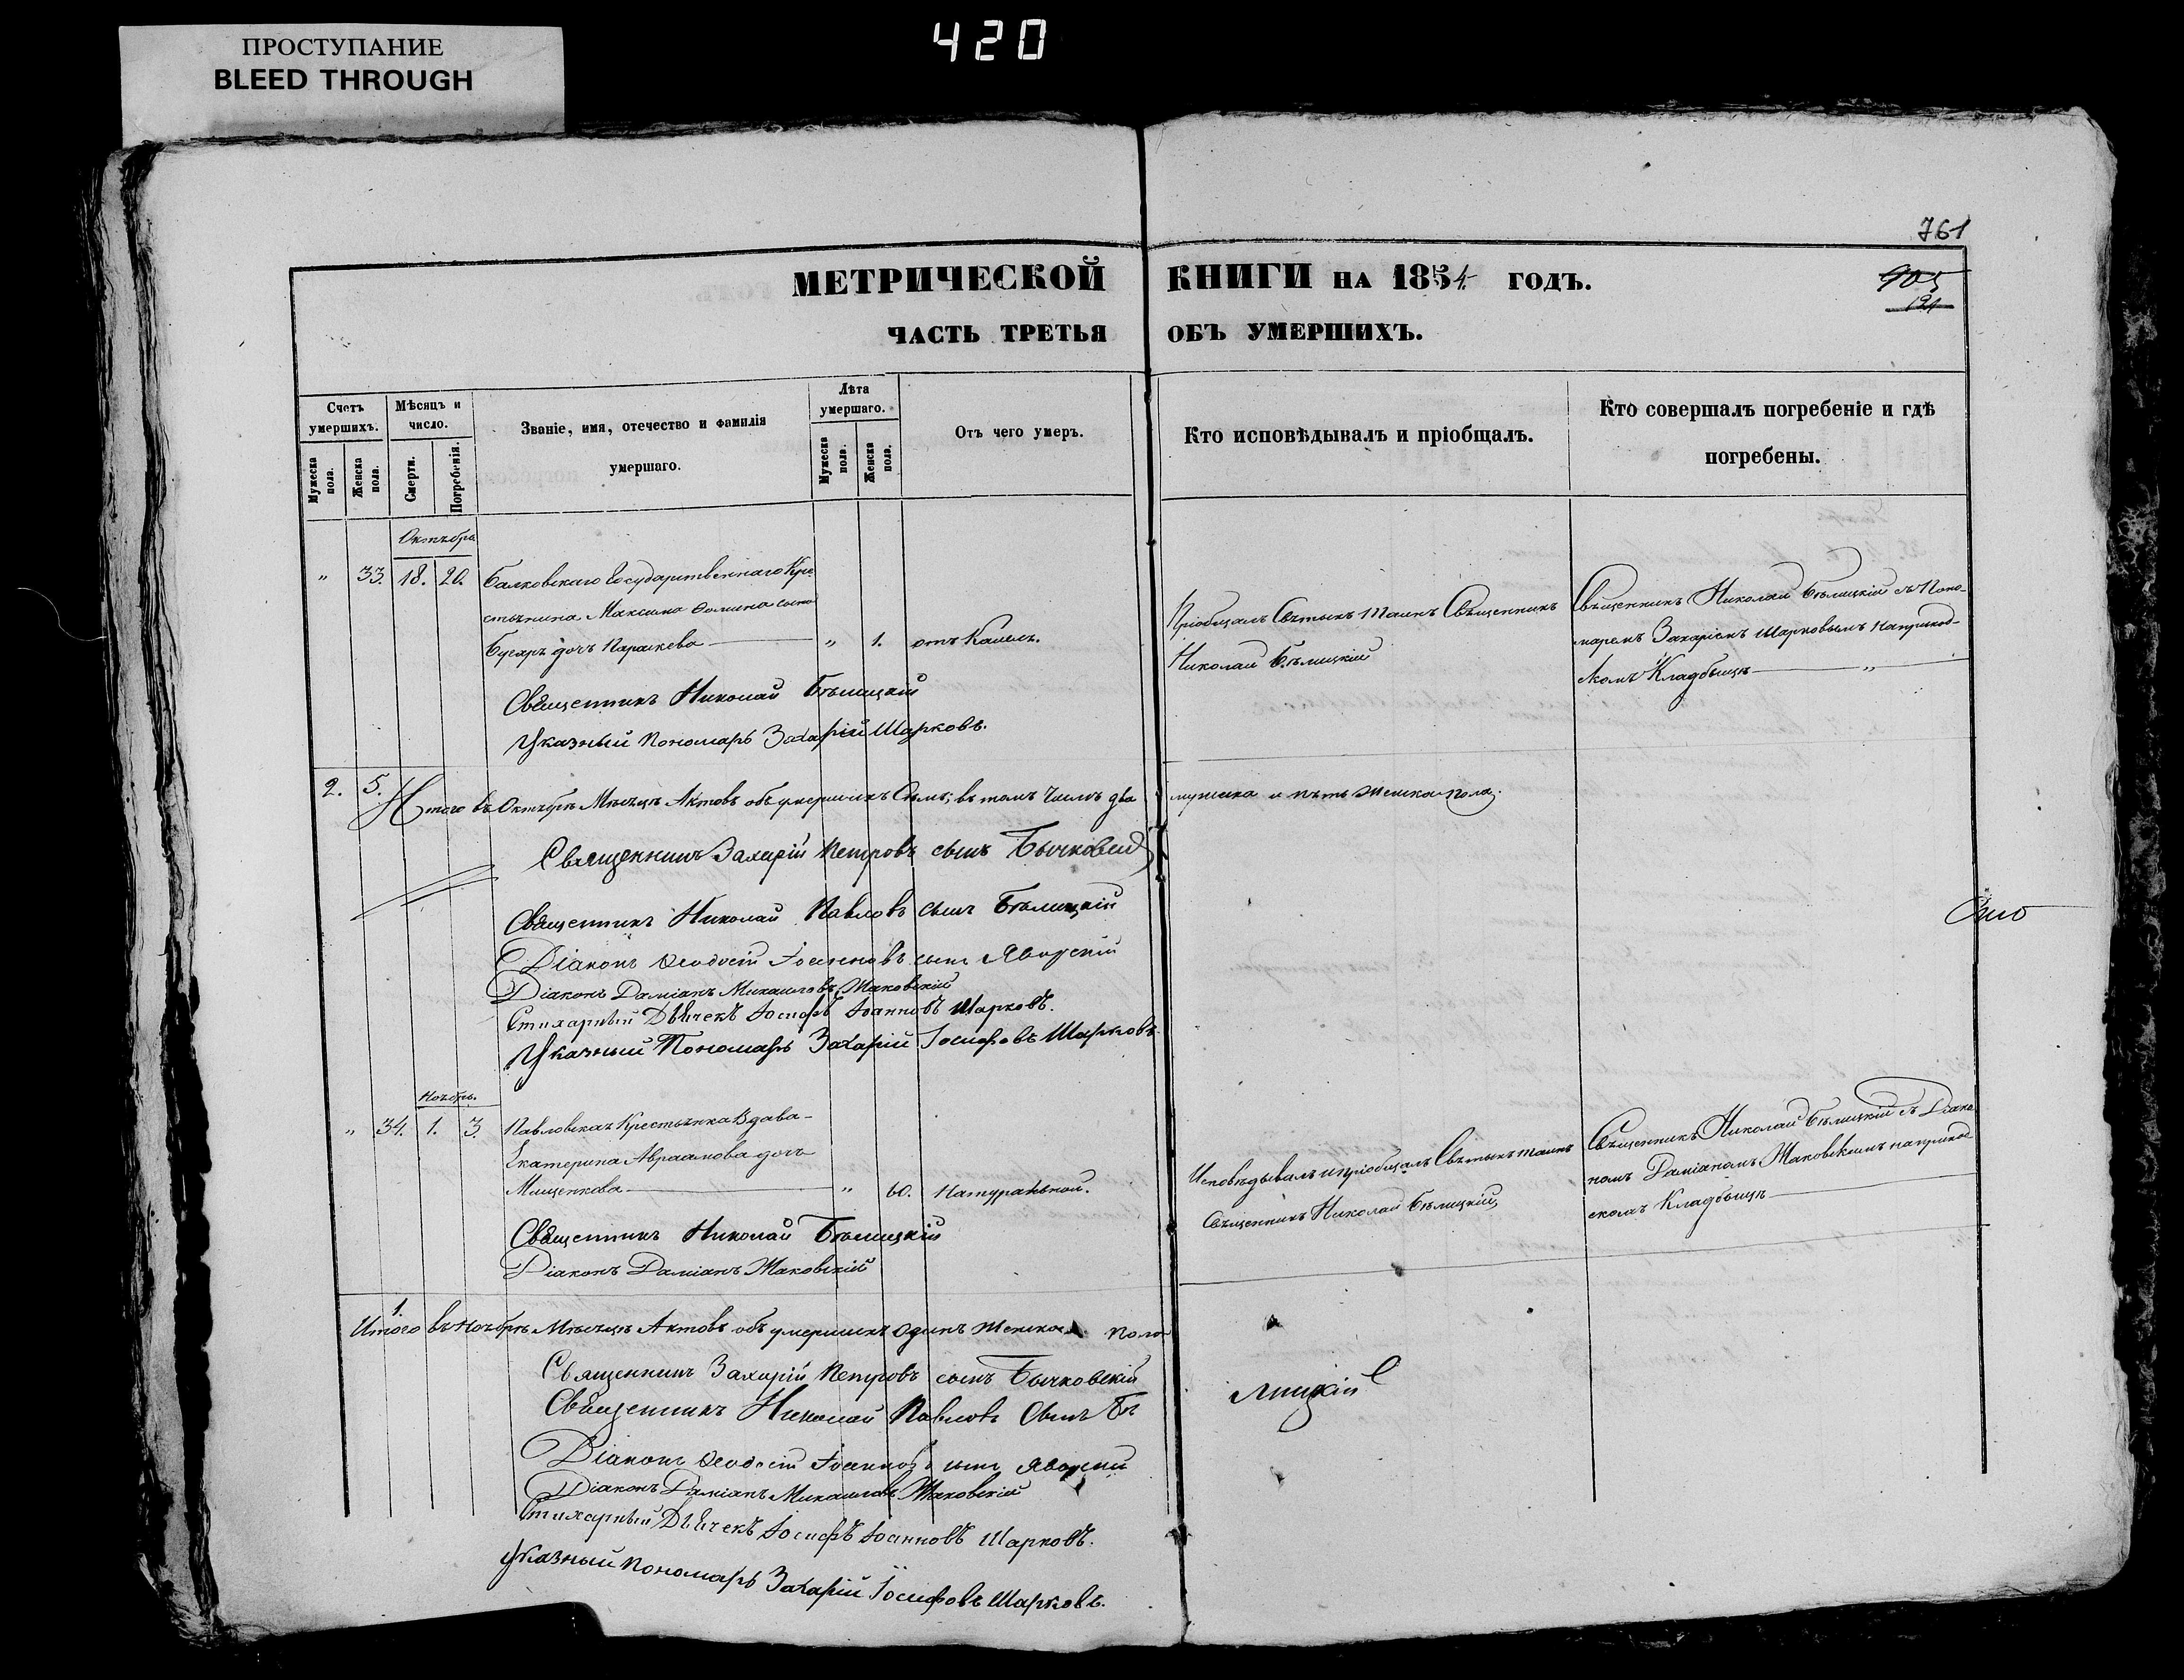 ПРОСТУПАНИЕ
BLEED THROUGH
420
761
905
191
МЕТРИЧЕСКОЙ КНИГИ НА 1854 ГОДЪ.
ЧАСТЬ ТРЕТЬЯ ОБЪ УМЕРШИХЪ.
Счетъ умершихъ.
Мужеска пола.
Женска пола.
Мѣсяцъ и число.
Смерти.
Погребенія.
Званіе, имя, отечество и фамилія умершаго.
Лѣта умершаго.
Мужеска пола.
Женска пола.
Отъ чего умеръ.
Кто исповѣдывалъ и пріобщалъ.
Кто совершалъ погребеніе и гдѣ погребены.
Октября
" 33. 18. 20. Балковскаго Государственнаго Кре
стьянина Максима Фомина сына
Бусаръ дочь Параскева " 1. отъ Кашель.
Пріобщалъ Святыхъ Таинъ Священникъ
Николай Бѣлицкій
Священникъ Николай Бѣлицкій съ Поно-
маремъ Захаріемъ Шарковымъ на приход-
скомъ Кладбищѣ "
Священникъ Николай Бѣлицкій
Указный Пономарь Захарій Шарковъ.
2. 5. Итого въ Октябрѣ Мѣсяцѣ Актовъ объ умершихъ Семь; въ томъ числѣ два мужска и пять женска пола.
Священникъ Захарій Петровъ сынъ Бычковскій
Священникъ Николай Павловъ сынъ Бѣлицкій
Діаконъ Ѳеодосій Іоанновъ сынъ Яворскій
Діаконъ Даміанъ Михаиловъ Маковскій
Стихарный Дьячекъ Іосифъ Іоанновъ Шарковъ.
Указный Пономарь Захарій Іосифовъ Шарковъ
Ноябрь.
" 34. 1. 3. Павловская Крестьянка Вдова
Екатерина Авраамова дочь
Мищенкова " 60. Натуральной.
Исповѣдывалъ и пріобщалъ Святыхъ таинъ
Священникъ Николай Бѣлицкій
Священникъ Николай Бѣлицкій съ Діако
номъ Даміаномъ Маковскимъ на приход
скомъ Кладбищѣ
Священникъ Николай Бѣлицкій
Діаконъ Даміанъ Маковскій
1.
Итого въ Ноябрѣ Мѣсяцѣ Актовъ объ умершихъ одинъ женска пола
Священникъ Захарій Петровъ сынъ Бычковскій
Священникъ Николай Павловъ Сынъ Бѣ лицкій
Діаконъ Ѳеодосій Іоанновъ сынъ Яворскій
Діаконъ Даміанъ Михаиловъ Маковскій
Стихарный Дьячекъ Іосифъ Іоанновъ Шарковъ.
Указный пономарь Захарій Іосифовъ Шарковъ.